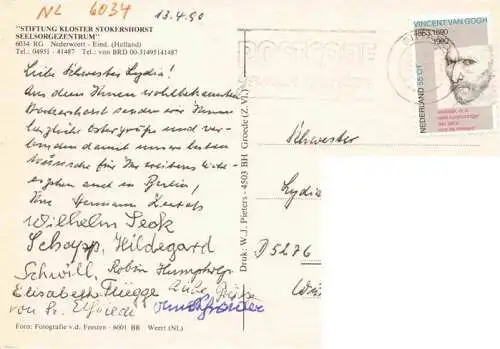 NL 6034
13.4.90
"STIFTUNG KLOSTER STOKERSHORST
SEELSORGEZENTRUM"
6034 RG Nederweert - Eind. (Holland)
Tel.: 04951 - 41487 Tel.: von BRD 00-31495141487
Liebe Schwester Lydia!
Aus dem Ihnen wohlbekannten
Stokershorst senden wir Ihnen
herzliche Ostergrüße und ver-
binden damit unsere besten
Wünsche für Ihr weiteres Wohl-
ergehen auch in Berlin,
Ihre Hermann
Wilhelm
Schopp, Hildegard
Schwill, Robin
Elisabeth Flügge
von Sr. Elfriede
Foto: Fotografie v.d. Feesten - 6001 BR Weert (NL)
Druk: W.J. Pieters - 4503 BH Groede (Z.Vl.)
POSTCODE
VINCENT VAN GOGH
1853-1890
1990
NEDERLAND 55 ct
Schwester
Lydia
D 5276